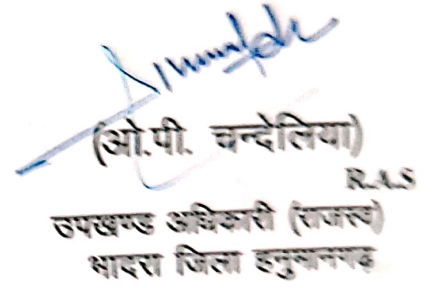 (ओ.पी. चन्देलिया)
R.A.S
उपखण्ड अधिकारी (राजस्व)
भादरा जिला हनुमानगढ़